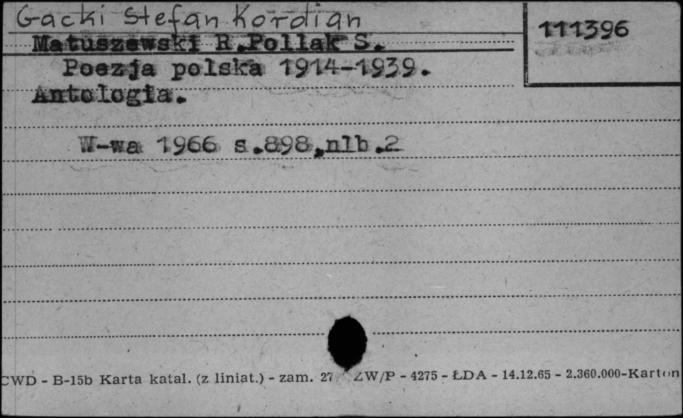 Gacki Stefan Kordian
111396
Matuszewski R.Pollak S.
Poezja polska 1914-1939.
Antologia.
W-wa 1966 s.898,nlb.2
CWD - B-15b Karta katal. (z liniat.) - zam. 27 ZW/P - 4275 - ŁDA - 14.12.65 - 2.360.000-Karton